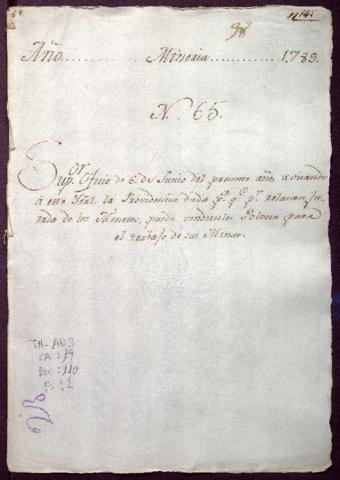 98
Año.......... Mineria............ 1789.
N. 65.
Sup.or Oficio de 6. de Junio del presente año, avisando
á este Tral. la Providencia dada p.a q.e p.r relacion ju-
rada de los Mineros, pueda venderseles Polvora para
el trabajo de sus Minas.
TM-AD3
CA: 19
Doc: 110
FS: 1